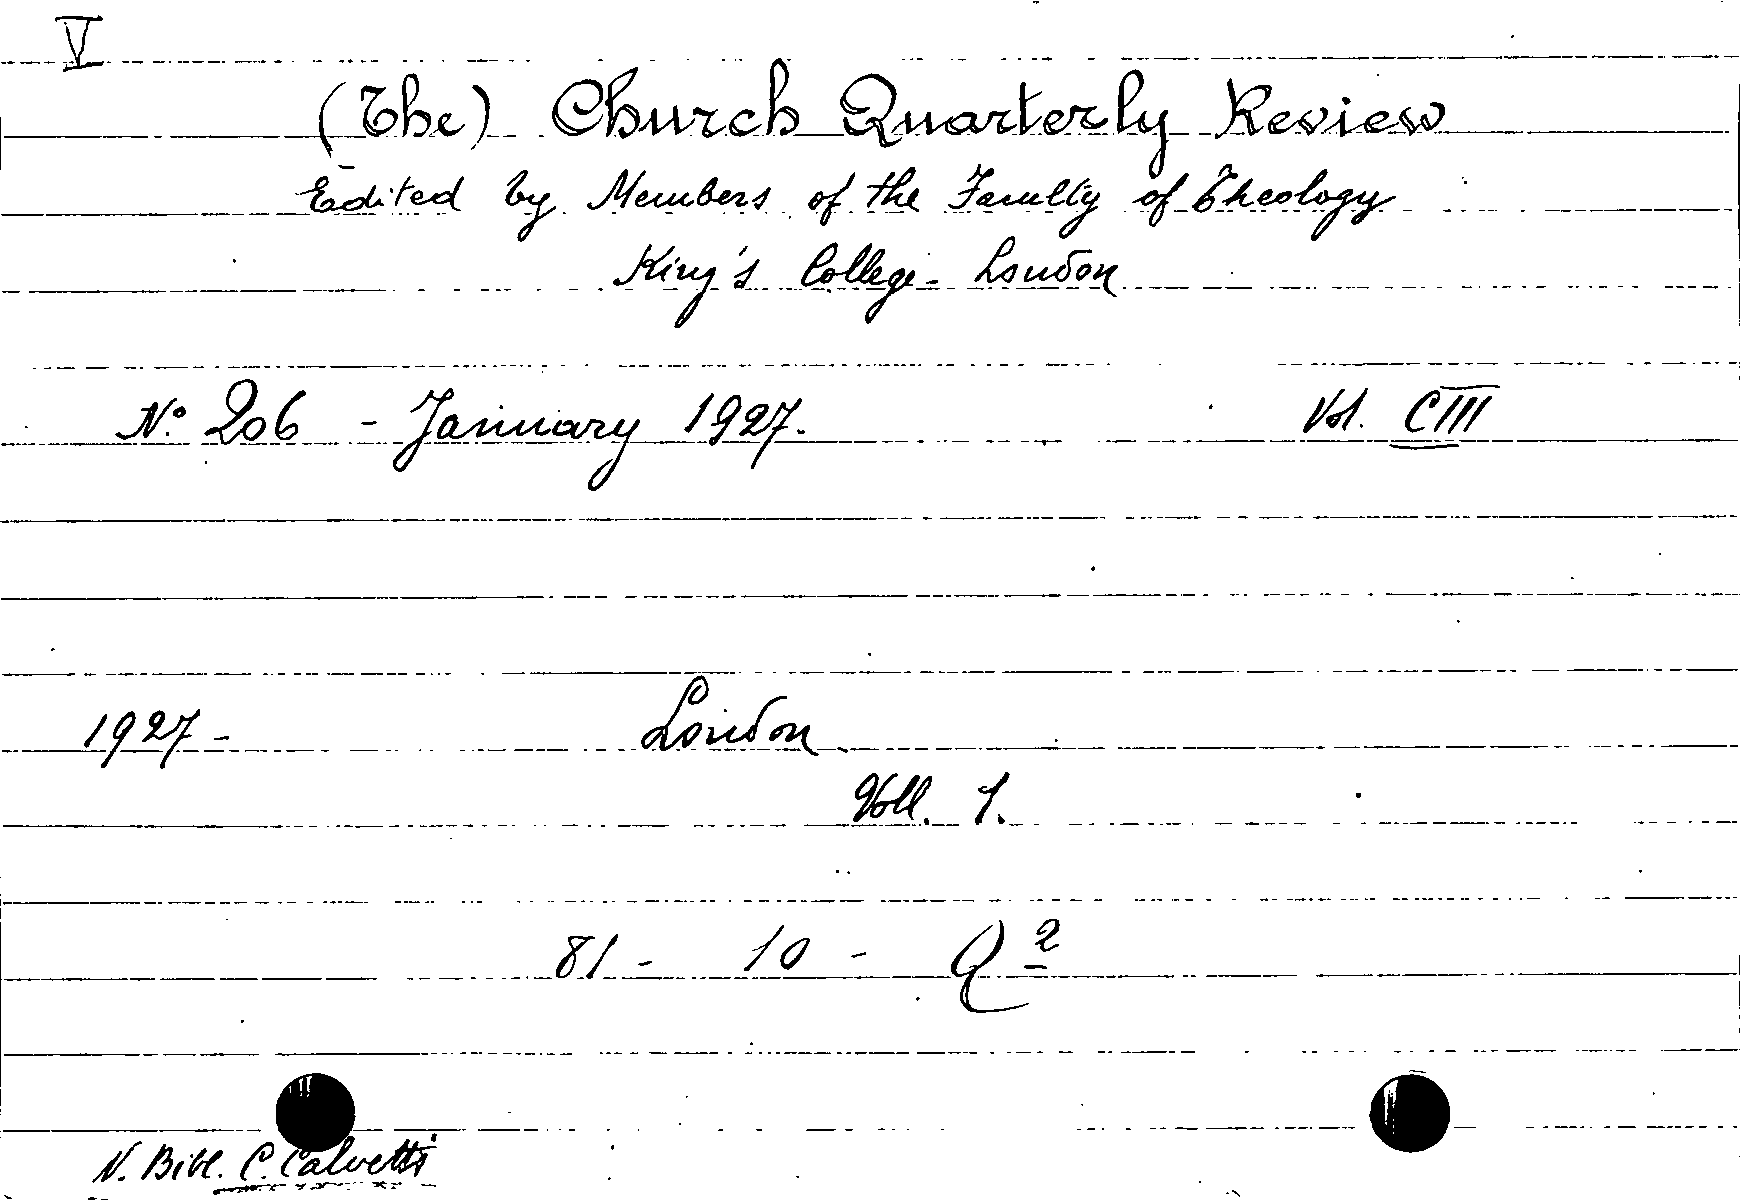 V
(The) Church Quarterly Review
Edited by Members of the Faculty of Theology
King's College - London
N° 206 - January 1927. Vol. CIII
1927 - London
Voll. 1.
81 - 10 - Q 2
N. Bibl. C. Calvetti